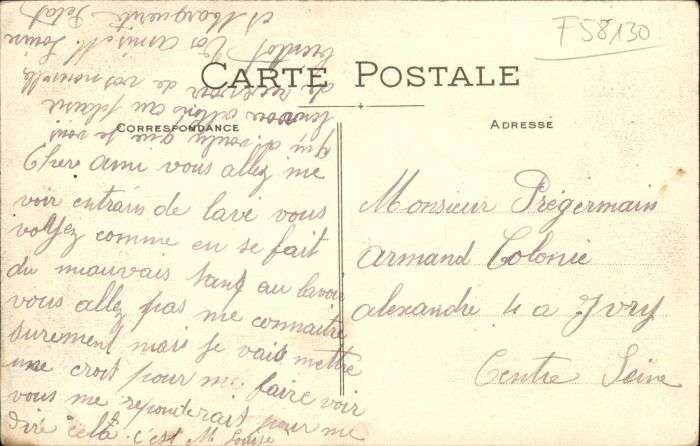 F58130
CARTE POSTALE
CORRESPONDANCE
ADRESSE
Chere ami vous allez me
voir entrain de lavé vous
voyez comme en se fait
du mauvais sang au lavoir
vous allez pas me connaitre
surement mais je vais mettre
une croix pour me faire voir
vous me reponderais pour me
dire cela c'est M. Louise
qui di voulu que je vous
au plaisir
de recevoir de vos nouvelle
bientot Vos amis M. Louise
et Marguerite Pelat
Monsieur Prégermain
armand Colonie
alexandre 4 a Ivry
Centre Seine